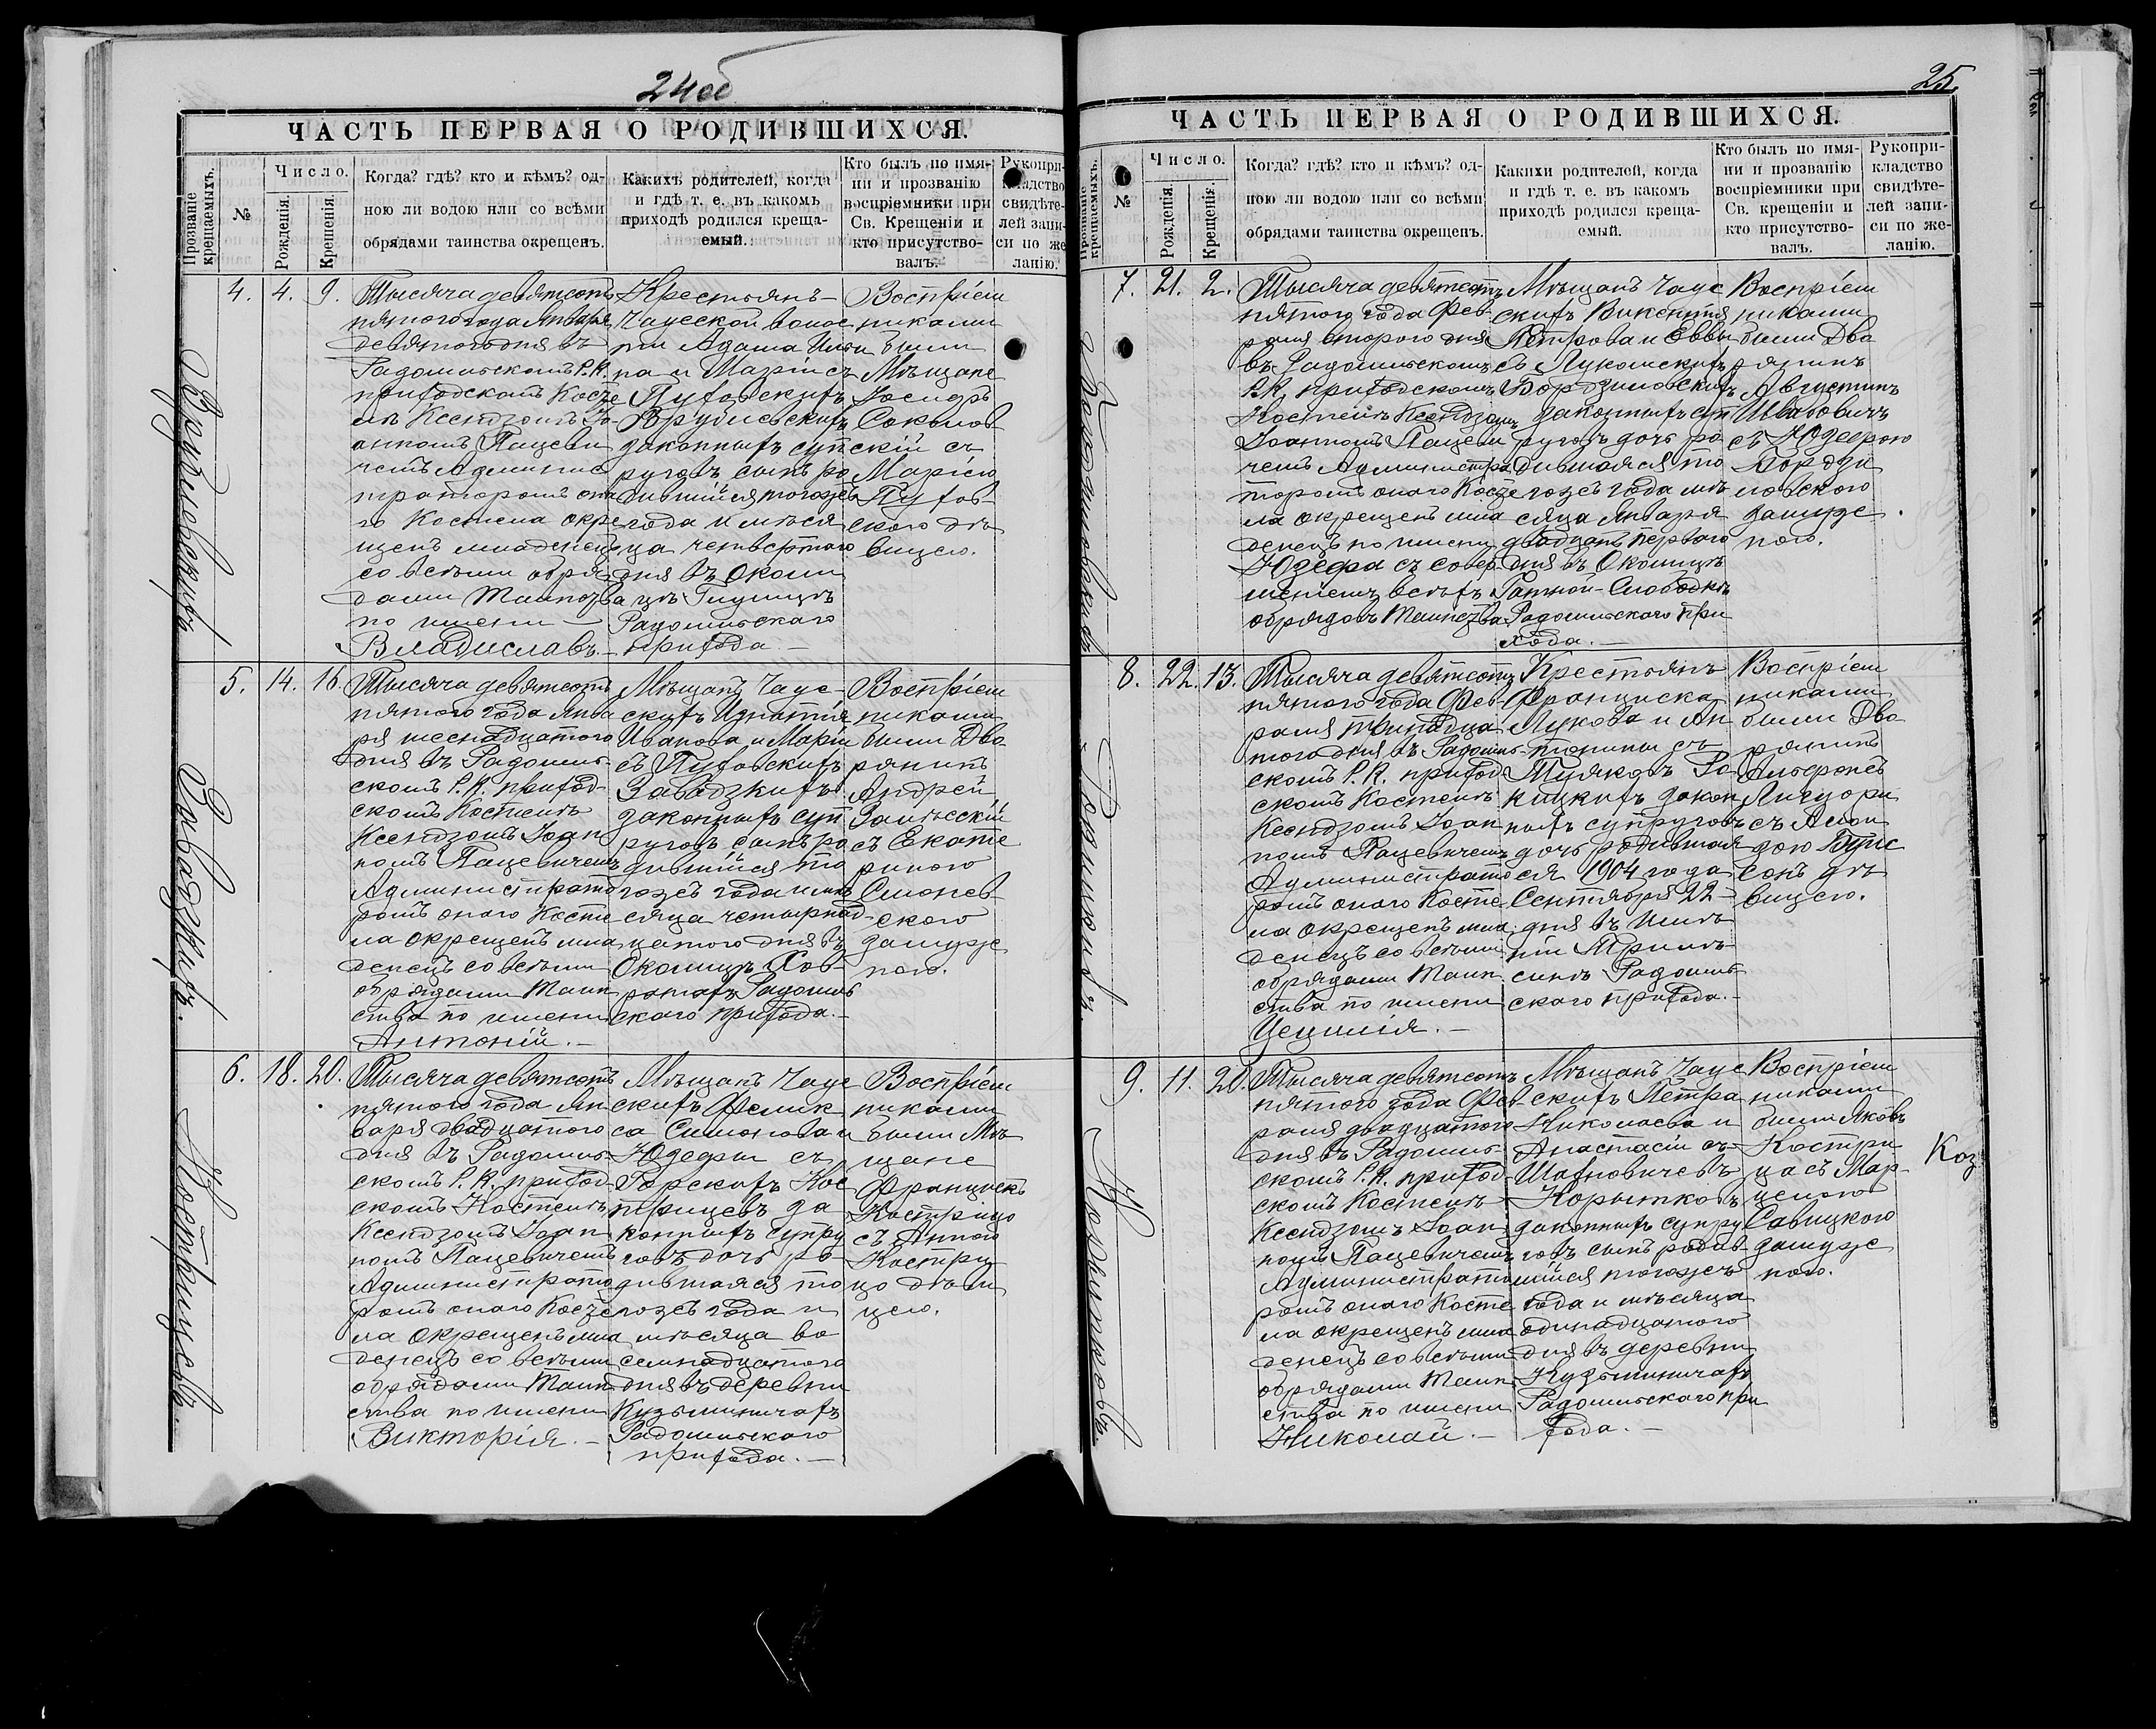 24об
ЧАСТЬ ПЕРВАЯ О РОДИВШИХСЯ.
Прозваніе крещаемыхъ.
№
Число.
Рожденія.
Крещенія.
Когда? гдѣ? кто и кѣмъ? од-
ною ли водою или со всѣми
обрядами таинства окрещенъ.
Какихъ родителей, когда
и гдѣ т. е. въ какомъ
приходѣ родился креща-
емый.
Кто былъ по имя-
ни и прозванію
воспріемники при
Св. Крещеніи и
кто присутство-
валъ.
Рукопри-
кладство
свидѣте-
лей запи-
си по же-
ланію.
4. 4. 9.
Тысяча девятсотъ
пятого года Января
девятого дня въ
Радомльскомъ Р.К.
приходскомъ Косте
лѣ Ксендзомъ Іо-
анномъ Пацеви
чемъ Админис
траторомъ она
го Костела окре
щенъ младенецъ
со всѣми обря
дами Таинства
по имени —
Владиславъ. —
Крестьянъ —
Чаусской волос
ти Адама
на и Маріи съ
Пуховскихъ
законныхъ суп
руговъ сынъ ро
дившійся тогожъ
года и мѣся
ца четвертого
дня въ Околи
цѣ
Радомльскаго
прихода. —
Воспріем
никами
были
Мѣщане
Іосифъ
Соколов
скій съ
Маріею
Пухов-
скою дѣ
вицею.
5. 14. 16.
Завадзкихъ.
Тысяча девятсотъ
пятого года Янва
ря шеснадцатого
дня въ Радомль-
скомъ Р.К. приход-
скомъ Костелѣ
Ксендзомъ Іоан
номъ Пацевичемъ
Администрато
ромъ онаго Косте
ла окрещенъ мла
денецъ со всѣми
обрядами Таин
ства по имени
Антоній. —
Мѣщанъ Чаус-
скихъ Игнатія
Иванова и Маріи
съ Пуховскихъ
Завадзкихъ
законныхъ суп
руговъ сынъ ро
дившійся то
гожъ года и мѣ
сяца четырнад-
цатого дня въ
Околицѣ Хов-
рачахъ Радомль
скаго прихода. —
Воспріем
никами
были Дво
рянинъ
Андрей
Залѣсскій
съ Екате
риною
Смонев
скою
замуж
ною.
6. 18. 20.
Кострицевъ.
Тысяча девятсотъ
пятого года Ян
варя двадцатого
дня въ Радомль-
скомъ Р.К. приход-
скомъ Костелѣ
Ксендзомъ Іоан
номъ Пацевичемъ
Администрато
ромъ онаго Косте
ла окрещенъ мла
денецъ со всѣми
обрядами Таин
ства по имени
Викторія. —
Мѣщанъ Чаус
скихъ Феликса
Симонова и
Юзефы съ
Горскихъ Кос
трицевъ за
конныхъ супру
говъ дочь ро
дившаяся то
гожъ года и
мѣсяца во
семнадцатого
дня въ деревни
Кузьминичахъ
Радомльскаго
прихода. —
Воспріем
никами
были Мѣ
щане
Францискъ
Кострицо
съ Анною
Костри
цо дѣви
цею.
25.
ЧАСТЬ ПЕРВАЯ О РОДИВШИХСЯ.
Прозваніе крещаемыхъ.
№
Число.
Рожденія.
Крещенія.
Когда? гдѣ? кто и кѣмъ? од-
ною ли водою или со всѣми
обрядами таинства окрещенъ.
Какихи родителей, когда
и гдѣ т. е. въ какомъ
приходѣ родился креща-
емый.
Кто былъ по имя-
ни и прозванію
воспріемники при
Св. крещеніи и
кто присутство-
валъ.
Рукопри-
кладство
свидѣте-
лей запи-
си по же-
ланію.
7. 21. 2.
Тысяча девятсотъ
пятого года Фев-
раля второго дня
въ Радомльскомъ
Р.К. приходскомъ
Костелѣ Ксендзомъ
Іоанномъ Пацеви
чемъ Администра
торомъ онаго Косте
ла окрещенъ мла
денецъ по имени
Юзефа съ совер-
шеніемъ всѣхъ
обрядовъ Таинства
Мѣщанъ Чаус
скихъ Викентія
Петрова и Еввы
съ Лукомскихъ
Бордзиловскихъ
законныхъ суп
руговъ дочь ро
дившаяся то
гожъ года мѣ
сяца Января
двадцать первого
дня въ Околицѣ
Ратной-Слободкѣ
Радомльскаго при
хода. —
Воспріем
никами
были Дво
рянинъ
Августинъ
Ивановичъ
съ Юзефою
Бордзи
ловскою
замуж-
ною.
8. 22. 13.
Тысяча девятсотъ
пятого года Фев-
раля тринадца
того дня въ Радомль-
скомъ Р.К. приход-
скомъ Костелѣ
Ксендзомъ Іоан
номъ Пацевичемъ
Администрато
ромъ онаго Косте-
ла окрещенъ мла
денецъ со всѣми
обрядами Таин
ства по имени
Цецилія. —
Крестьянъ
Франциска
Лукова и Ан
тонины съ
законныхъ супруговъ
дочь родившая
ся 1904 года
Сентября 22-
дня въ Имѣ
ніи
Радомль
скаго прихода. —
Воспріем
никами
были Дво
рянинъ
дѣ
вицею.
9. 11. 20.
Корытковъ.
Тысяча девятсотъ
пятого года Фев-
раля двадцатого
дня въ Радомль-
скомъ Р.К. приход-
скомъ Костелѣ
Ксендзомъ Іоан
номъ Пацевичемъ
Администрато
ромъ онаго Косте
ла окрещенъ мла
денецъ со всѣми
обрядами Таин
ства по имени
Николай. —
Мѣщанъ Чаус
скихъ Петра
Николаева и
Анастасіи съ
Шахновичевъ
Корытковъ
законныхъ супру
говъ сынъ родив-
шійся тогожъ
года и мѣсяца
одинадцатого
дня въ деревни
Кузьминичахъ
Радомльскаго при
хода. —
Воспріем
никами
были Яковъ
Костри
ца съ Мар-
целою
Савицкою
замуж
ною.
Коз